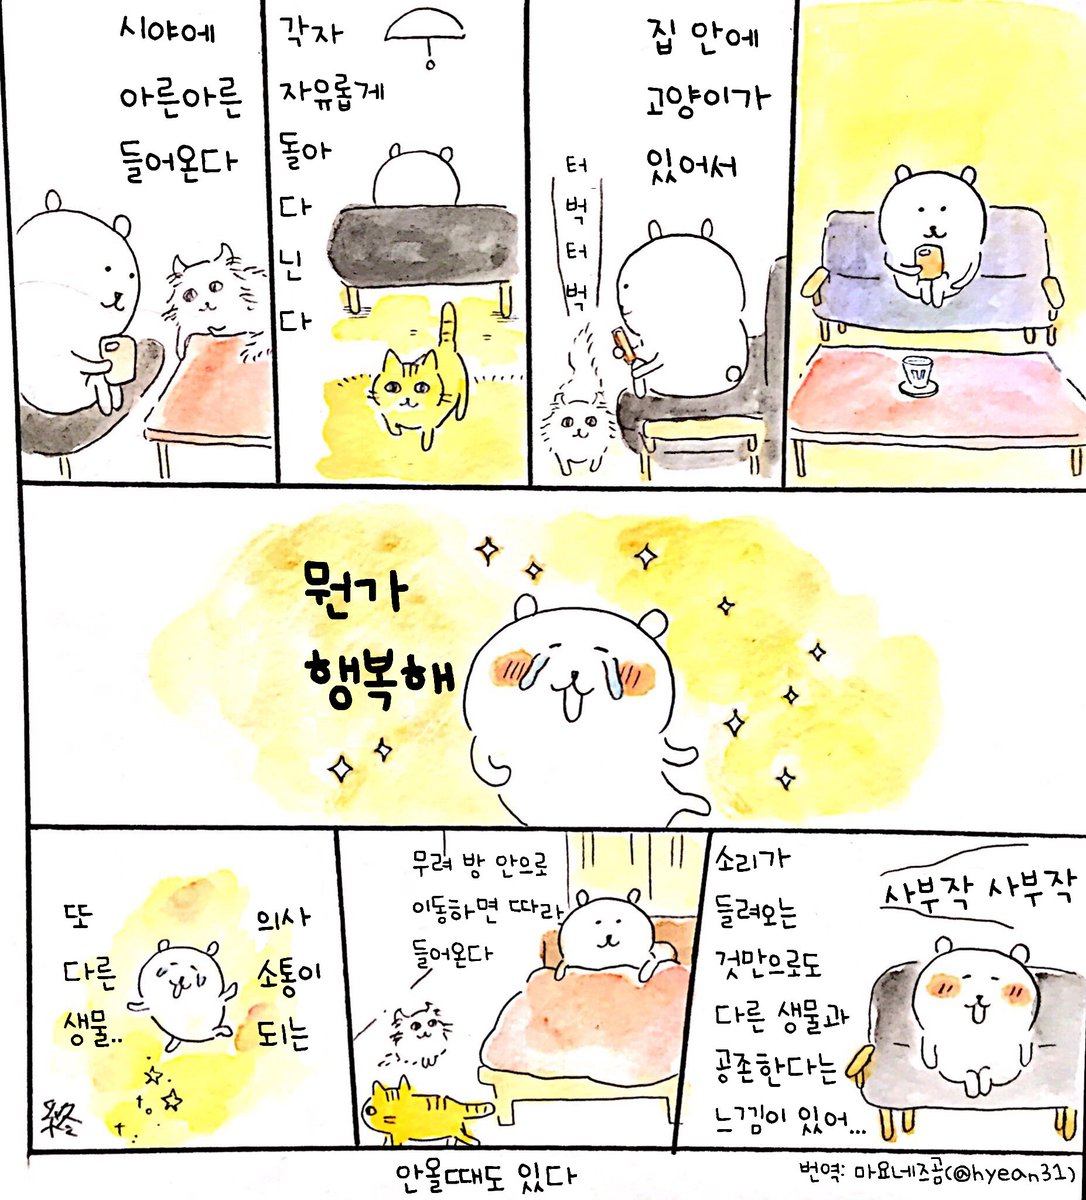 집 안에
고양이가
있어서
터
벅
터
벅
각자
자유롭게
돌아
다
닌
다
시야에
아른아른
들어온다
뭔가
행복해
사부작 사부작
소리가
들려오는
것만으로도
다른 생물과
공존한다는
느낌이 있어...
무려 방 안으로
이동하면 따라
들어온다
안올때도 있다
의사
소통이
되는
또
다른
생물..
終
번역: 마요네즈곰(@hyean31)